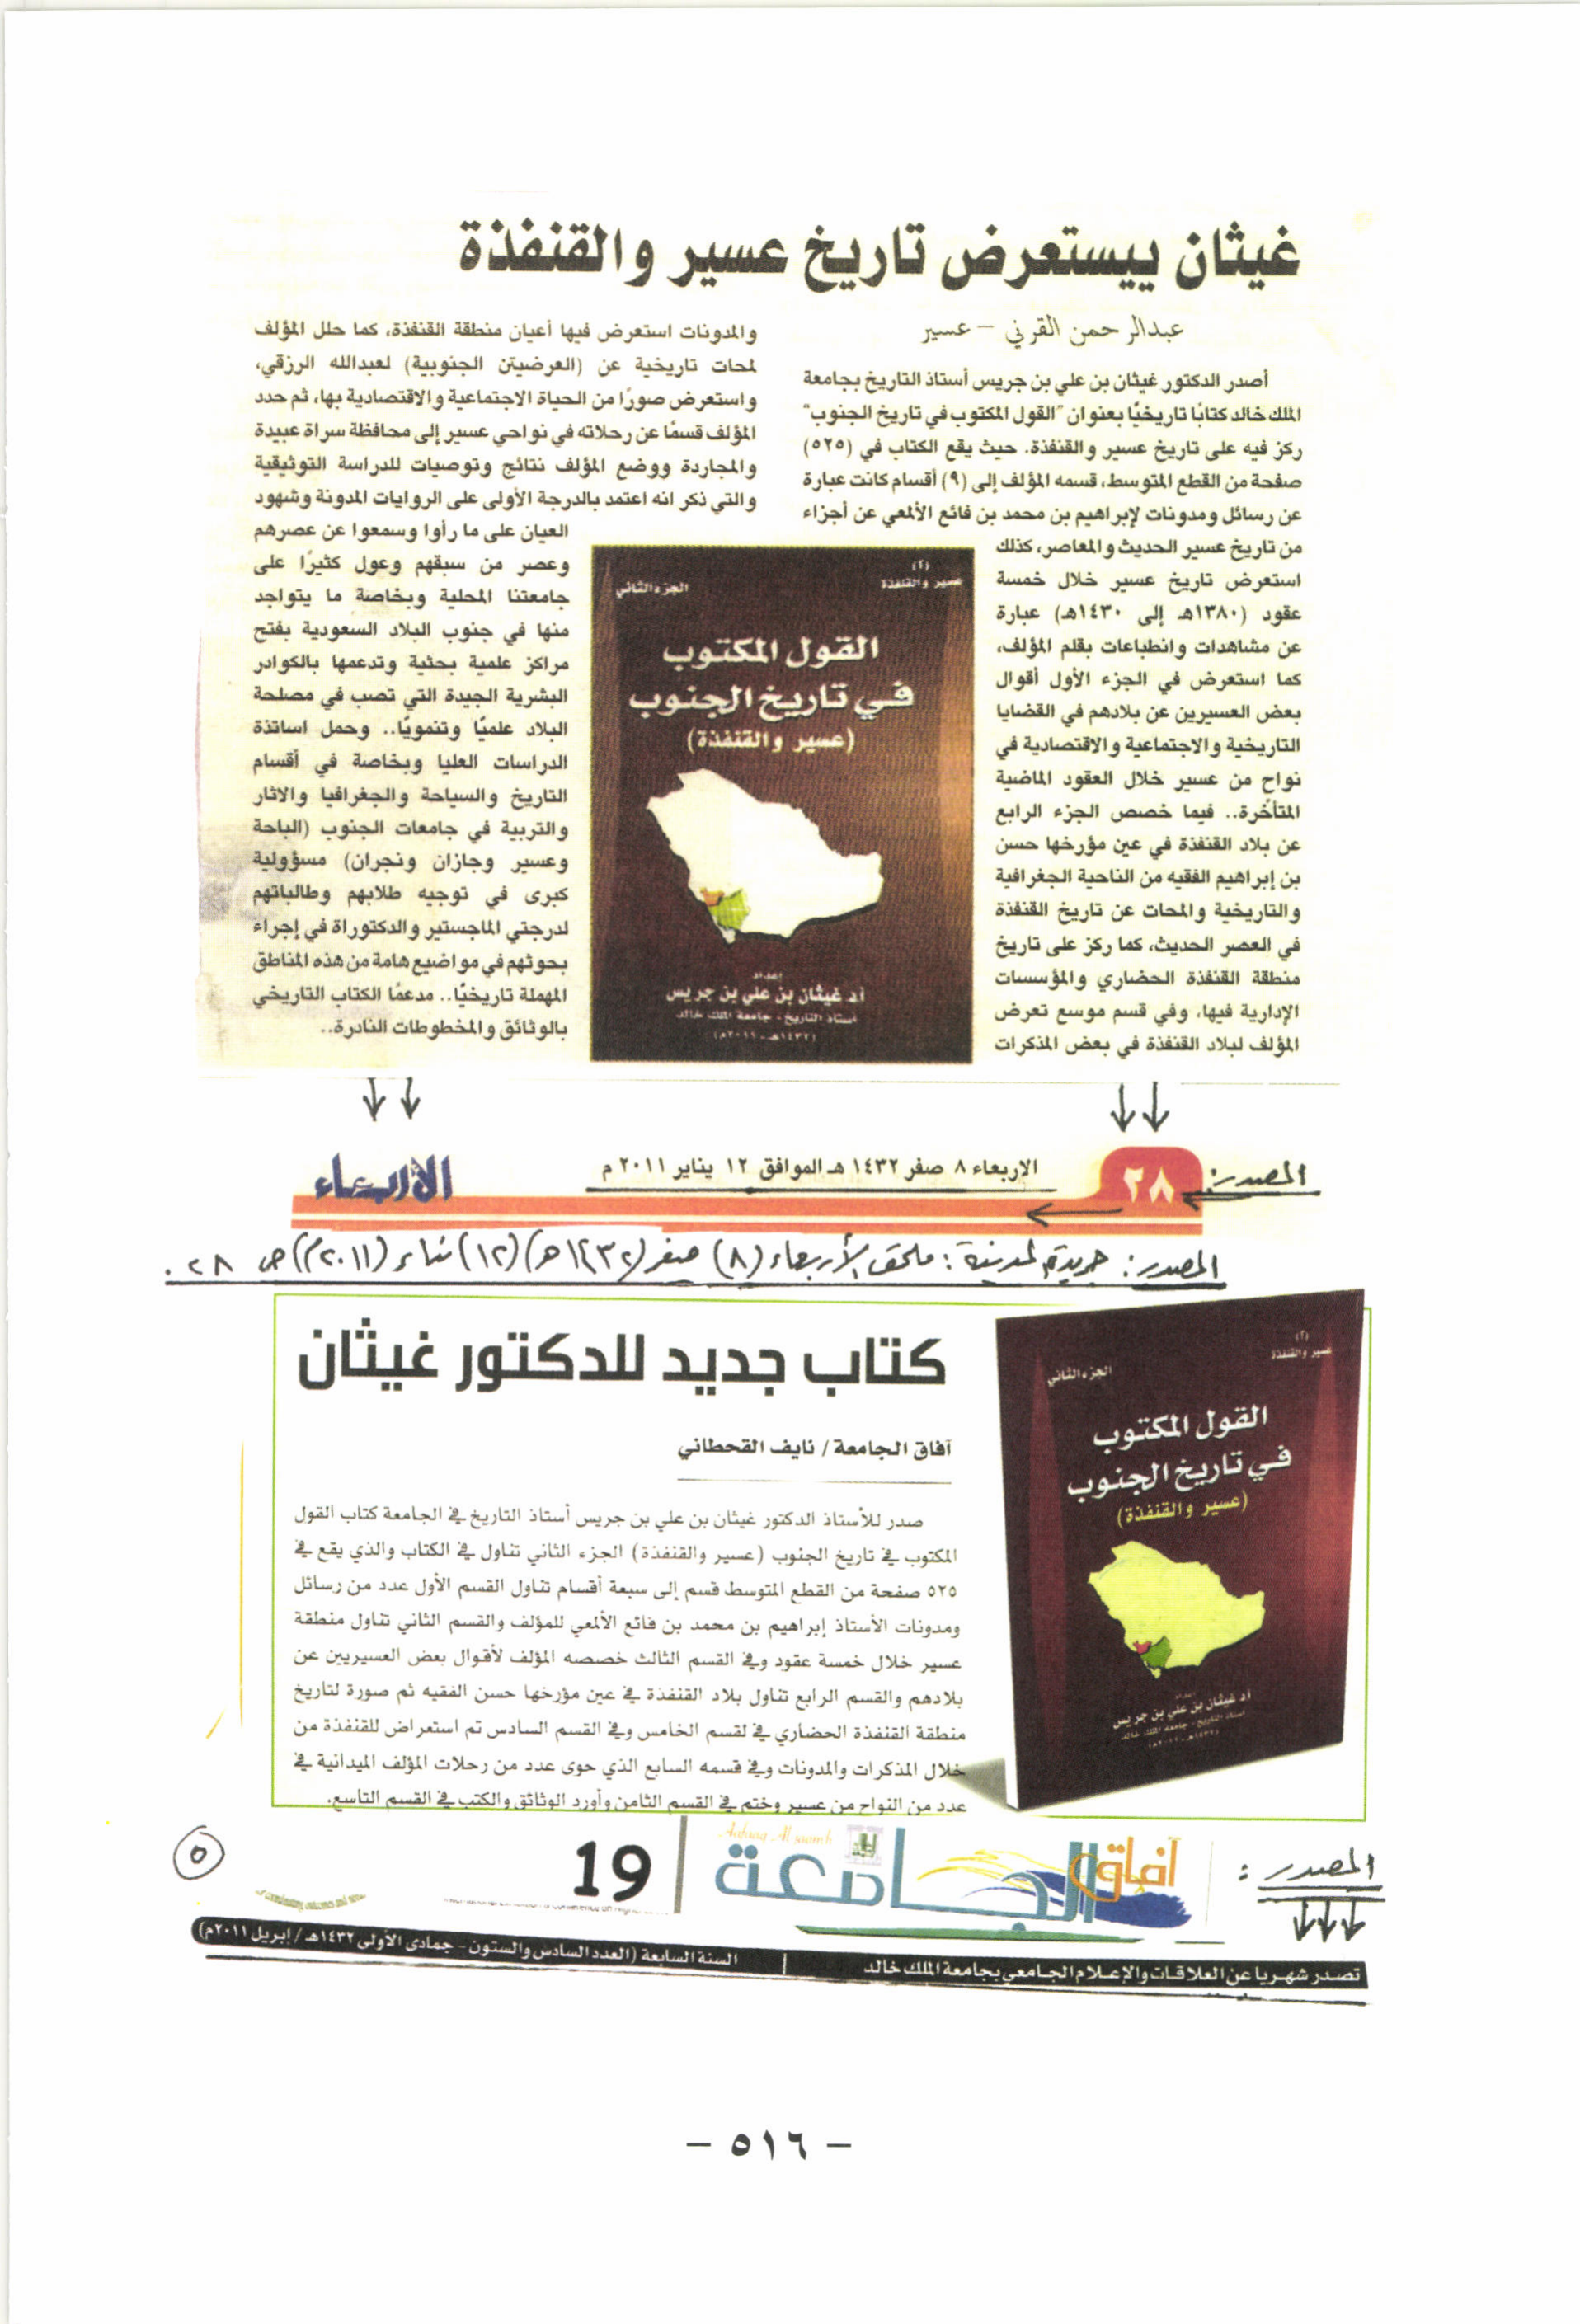 غيثان ييستعرض تاريخ عسير والقنفذة
عبدالرحمن القرني – عسير
أصدر الدكتور غيثان بن علي بن جريس أستاذ التاريخ بجامعة
الملك خالد كتابًا تاريخيًا بعنوان "القول المكتوب في تاريخ الجنوب"
ركز فيه على تاريخ عسير والقنفذة. حيث يقع الكتاب في (٥٢٥)
صفحة من القطع المتوسط، قسمه المؤلف إلى (٩) أقسام كانت عبارة
عن رسائل ومدونات لإبراهيم بن محمد بن فائع الألمعي عن أجزاء
من تاريخ عسير الحديث والمعاصر، كذلك
استعرض تاريخ عسير خلال خمسة
عقود (١٣٨٠هـ إلى ١٤٣٠هـ) عبارة
عن مشاهدات وانطباعات بقلم المؤلف،
كما استعرض في الجزء الأول أقوال
بعض العسيرين عن بلادهم في القضايا
التاريخية والاجتماعية والاقتصادية في
نواح من عسير خلال العقود الماضية
المتأخرة.. فيما خصص الجزء الرابع
عن بلاد القنفذة في عين مؤرخها حسن
بن إبراهيم الفقيه من الناحية الجغرافية
والتاريخية والمحات عن تاريخ القنفذة
في العصر الحديث، كما ركز على تاريخ
منطقة القنفذة الحضاري والمؤسسات
الإدارية فيها، وفي قسم موسع تعرض
المؤلف لبلاد القنفذة في بعض المذكرات
والمدونات استعرض فيها أعيان منطقة القنفذة، كما حلل المؤلف
لمحات تاريخية عن (العرضيتن الجنوبية) لعبدالله الرزقي،
واستعرض صورًا من الحياة الاجتماعية والاقتصادية بها، ثم حدد
المؤلف قسمًا عن رحلاته في نواحي عسير إلى محافظة سراة عبيدة
والمجاردة ووضع المؤلف نتائج وتوصيات للدراسة التوثيقية
والتي ذكر انه اعتمد بالدرجة الأولى على الروايات المدونة وشهود
العيان على ما رأوا وسمعوا عن عصرهم
وعصر من سبقهم وعول كثيرًا على
جامعتنا المحلية وبخاصة ما يتواجد
منها في جنوب البلاد السعودية بفتح
مراكز علمية بحثية وتدعمها بالكوادر
البشرية الجيدة التي تصب في مصلحة
البلاد علميًا وتنمويًا.. وحمل اساتذة
الدراسات العليا وبخاصة في أقسام
التاريخ والسياحة والجغرافيا والاثار
والتربية في جامعات الجنوب (الباحة
وعسير وجازان ونجران) مسؤولية
كبرى في توجيه طلابهم وطالباتهم
لدرجتي الماجستير والدكتوراة في إجراء
بحوثهم في مواضيع هامة من هذه المناطق
المهملة تاريخيًا.. مدعمًا الكتاب التاريخي
بالوثائق والمخطوطات النادرة..
(٢)
عسير والقنفذة
الجزء الثاني
القول المكتوب
في تاريخ الجنوب
(عسير والقنفذة)
إعداد
أ.د غيثان بن علي بن جريس
أستاذ التاريخ - جامعة الملك خالد
(١٤٣٢هـ - ٢٠١١م)
المصدر:
٢٨
الاربعاء ٨ صفر ١٤٣٢ هـ الموافق ١٢ يناير ٢٠١١ م
الأربعاء
المصدر: جريدة المدينة: ملحق الأربعاء (٨) صفر (١٤٣٢هـ) (١٢) يناير (٢٠١١م) ص ٢٨.
كتاب جديد للدكتور غيثان
آفاق الجامعة / نايف القحطاني
صدر للأستاذ الدكتور غيثان بن علي بن جريس أستاذ التاريخ في الجامعة كتاب القول
المكتوب في تاريخ الجنوب (عسير والقنفذة) الجزء الثاني تناول في الكتاب والذي يقع في
٥٢٥ صفحة من القطع المتوسط قسم إلى سبعة أقسام تناول القسم الأول عدد من رسائل
ومدونات الأستاذ إبراهيم بن محمد بن فائع الألمعي للمؤلف والقسم الثاني تناول منطقة
عسير خلال خمسة عقود وفي القسم الثالث خصصه المؤلف لأقوال بعض العسيريين عن
بلادهم والقسم الرابع تناول بلاد القنفذة في عين مؤرخها حسن الفقيه ثم صورة لتاريخ
منطقة القنفذة الحضاري في لقسم الخامس وفي القسم السادس تم استعراض للقنفذة من
خلال المذكرات والمدونات وفي قسمه السابع الذي حوى عدد من رحلات المؤلف الميدانية في
عدد من النواح من عسير وختم في القسم الثامن وأورد الوثائق والكتب في القسم التاسع.
(٢)
عسير والقنفذة
الجزء الثاني
القول المكتوب
في تاريخ الجنوب
(عسير والقنفذة)
أ.د غيثان بن علي بن جريس
أستاذ التاريخ - جامعة الملك خالد
المصدر:
آفاق الجامعة
19
٥
تصدر شهريا عن العلاقات والإعلام الجامعي بجامعة الملك خالد | السنة السابعة (العدد السادس والستون - جمادى الأولى ١٤٣٢هـ / إبريل ٢٠١١م)
– ٥١٦ –